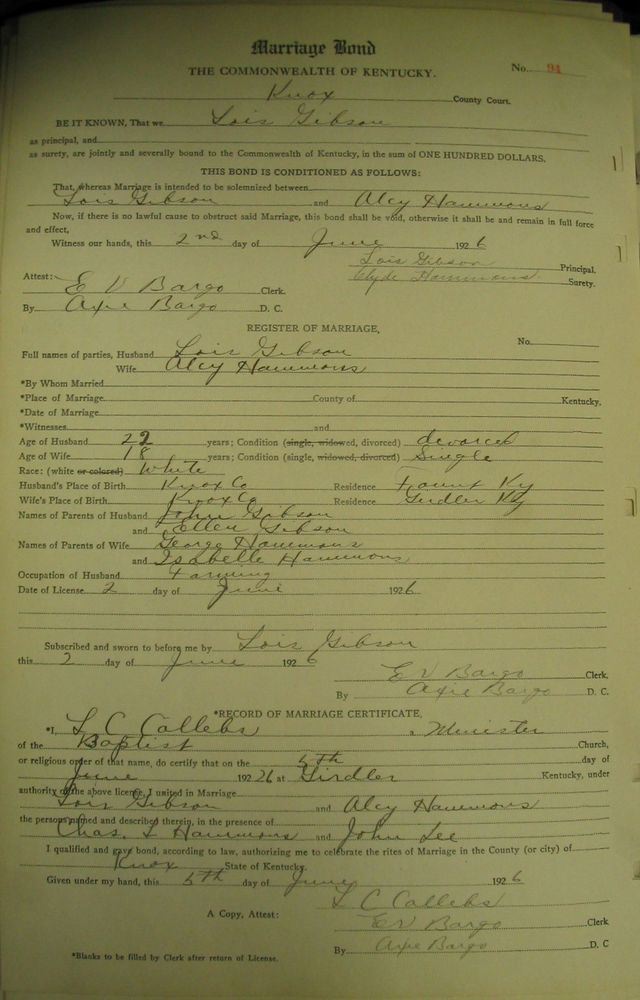 Marriage Bond
THE COMMONWEALTH OF KENTUCKY.
No. 94
Knox County Court.
BE IT KNOWN, That we Lois Gibson
as principal, and
as surety, are jointly and severally bound to the Commonwealth of Kentucky, in the sum of ONE HUNDRED DOLLARS.
THIS BOND IS CONDITIONED AS FOLLOWS:
That, whereas Marriage is intended to be solemnized between
Lois Gibson and Alcy Hammons
Now, if there is no lawful cause to obstruct said Marriage, this bond shall be void, otherwise it shall be and remain in full force
and effect,
Witness our hands, this 2nd day of June 1926
Lois Gibson Principal.
Attest: E V Bargo Clerk. Clyde Hammons Surety.
By Axie Bargo D. C.
REGISTER OF MARRIAGE.
No.
Full names of parties, Husband Lois Gibson
Wife Alcy Hammons
*By Whom Married
*Place of Marriage County of Kentucky.
*Date of Marriage
*Witnesses and
Age of Husband 22 years; Condition (single, widowed, divorced) devorced
Age of Wife 18 years; Condition (single, widowed, divorced) Single
Race: (white or colored) White
Husband's Place of Birth Knox Co Residence Ky
Wife's Place of Birth Knox Co Residence Girdler Ky
Names of Parents of Husband John Gibson
and Ellen Gibson
Names of Parents of Wife George Hammons
and Isabelle Hammons
Occupation of Husband Farming
Date of License 2 day of June 1926
Subscribed and sworn to before me by Lois Gibson
this 2 day of June 1926
E V Bargo Clerk.
By Axie Bargo D. C.
*RECORD OF MARRIAGE CERTIFICATE.
*I, L C Callebs a Minister
of the Baptist Church,
or religious order of that name, do certify that on the 5th day of
June 192 26 at Girdler Kentucky, under
authority of the above license, I united in Marriage
Lois Gibson and Alcy Hammons
the persons named and described therein, in the presence of
Chas. L Hammons and John Lee
I qualified and gave bond, according to law, authorizing me to celebrate the rites of Marriage in the County (or city) of
Knox State of Kentucky.
Given under my hand, this 5th day of June 1926
L C Callebs
A Copy, Attest: E V Bargo Clerk
By Axie Bargo D. C
*Blanks to be filled by Clerk after return of License.